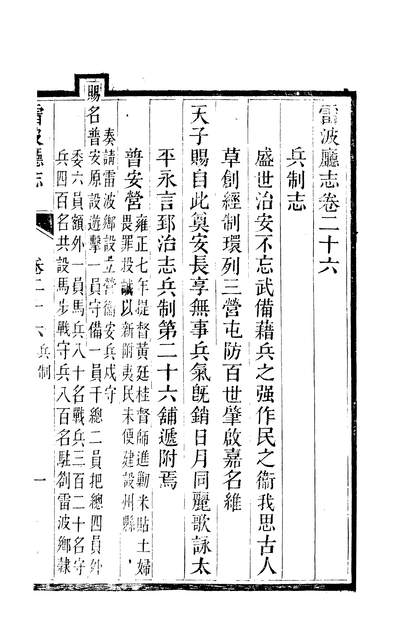 雷波廳志卷二十六
兵制志
盛世治安不忘武備藉兵之强作民之衞我思古人
草創經制環列三營屯防百世肇啟嘉名維
天子賜自此奠安長享無事兵氣旣銷日月同麗歌詠太
平永言郅治志兵制第二十六舖遞附焉
普安營
雍正七年提督黃廷桂督師進勦米貼土婦
畏罪投誠以新附夷民未便建設州縣
奏請雷波鄉設立營衞安兵戍守
賜名普安原設遊擊一員守備一員千總二員把總四員外
委六員額外一員馬兵八十名戰兵三百二十名守
兵四百名共設馬步戰守兵八百名駐劄雷波鄉隸
雷波廳志
卷二十六兵制
一